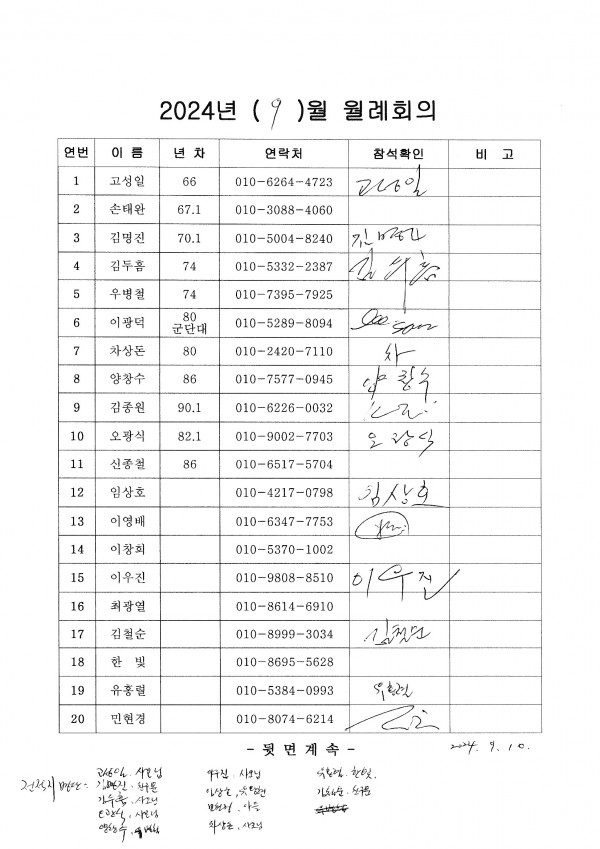 2024년 ( 9 )월 월례회의
연번 이 름 년 차 연락처 참석확인 비 고
1 고성일 66 010-6264-4723 고성일
2 손태완 67.1 010-3088-4060
3 김명진 70.1 010-5004-8240 김명진
4 김두흠 74 010-5332-2387 김두흠
5 우병철 74 010-7395-7925
6 이광덕 80 군단대 010-5289-8094
7 차상돈 80 010-2420-7110 차
8 양창수 86 010-7577-0945 양창수
9 김종원 90.1 010-6226-0032
10 오광식 82.1 010-9002-7703 오광식
11 신종철 86 010-6517-5704
12 임상호 010-4217-0798 임상호
13 이영배 010-6347-7753
14 이창희 010-5370-1002
15 이우진 010-9808-8510 이우진
16 최광열 010-8614-6910
17 김철순 010-8999-3034 김철순
18 한 빛 010-8695-5628
19 유홍렬 010-5384-0993 유홍렬
20 민현경 010-8074-6214
- 뒷 면 계 속 - 2024. 9. 10.
고성일. 사모님